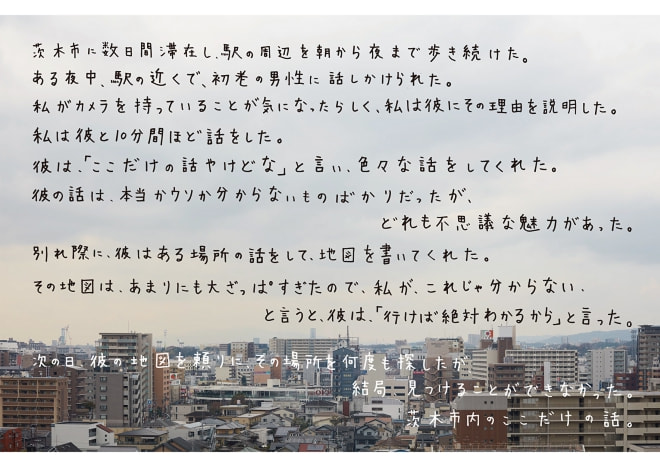 茨木市に数日間滞在し、駅の周辺を朝から夜まで歩き続けた。
ある夜中、駅の近くで、初老の男性に話しかけられた。
私がカメラを持っていることが気になったらしく、私は彼にその理由を説明した。
私は彼と10分間ほど話をした。
彼は、「ここだけの話やけどな」と言い、色々な話をしてくれた。
彼の話は、本当かウソか分からないものばかりだったが、
どれも不思議な魅力があった。
別れ際に、彼はある場所の話をして、地図を書いてくれた。
その地図は、あまりにも大ざっぱすぎたので、私が、これじゃ分からない、
と言うと、彼は、「行けば絶対わかるから」と言った。
次の日、彼の地図を頼りに、その場所を何度も探したが、
結局、見つけることができなかった。
茨木市内のここだけの話。